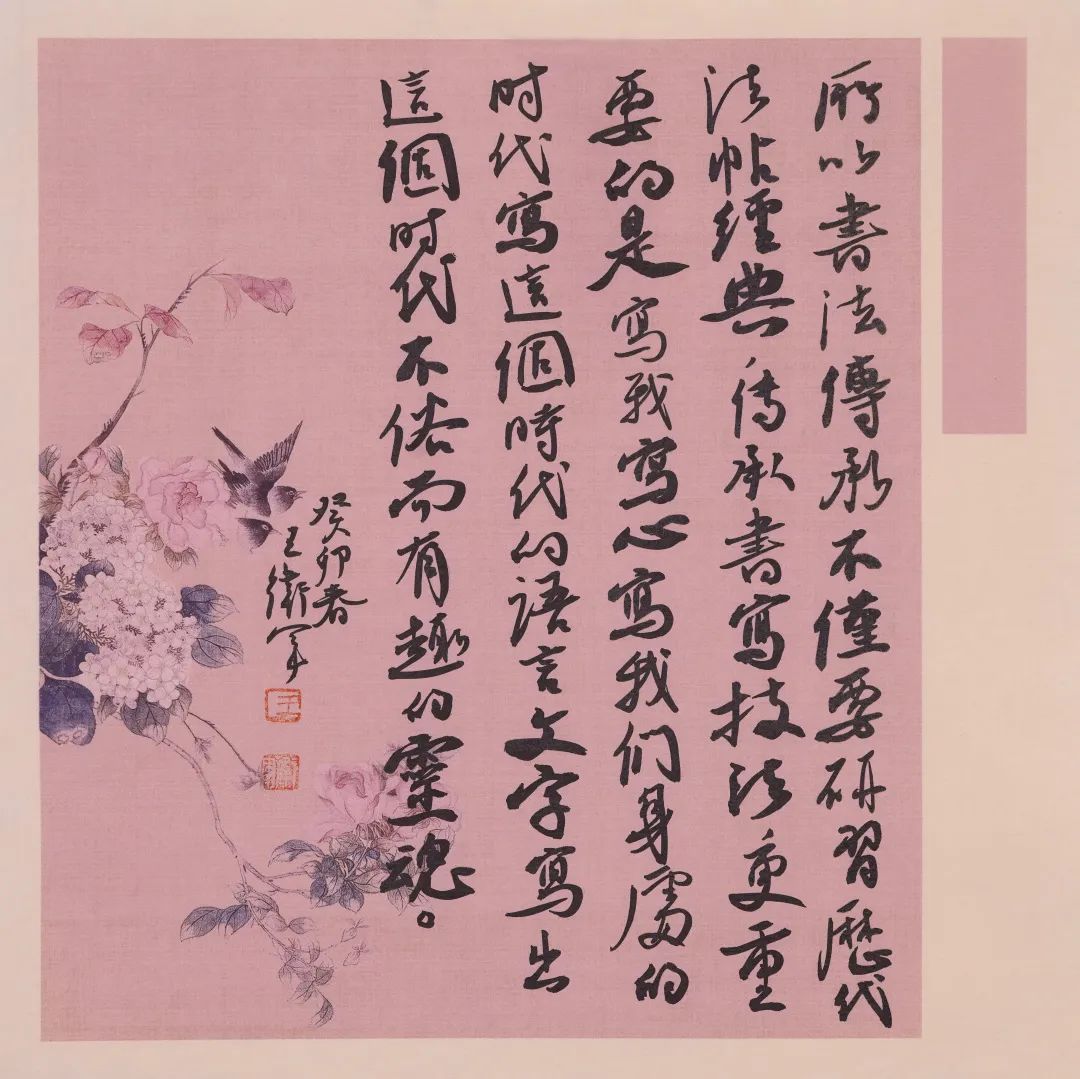 所以書法傳承不僅要研習歷代
法帖經典傳承書寫技法更重
要的是寫我寫心寫我们身處的
时代寫這個時代的語言文字寫出
這個时代不俗而有趣的靈魂。
癸卯春
王衛軍
王